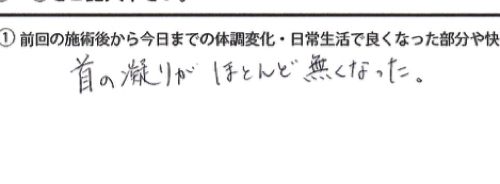 ① 前回の施術後から今日までの体調変化・日常生活で良くなった部分や快
首の凝りがほとんど無くなった。